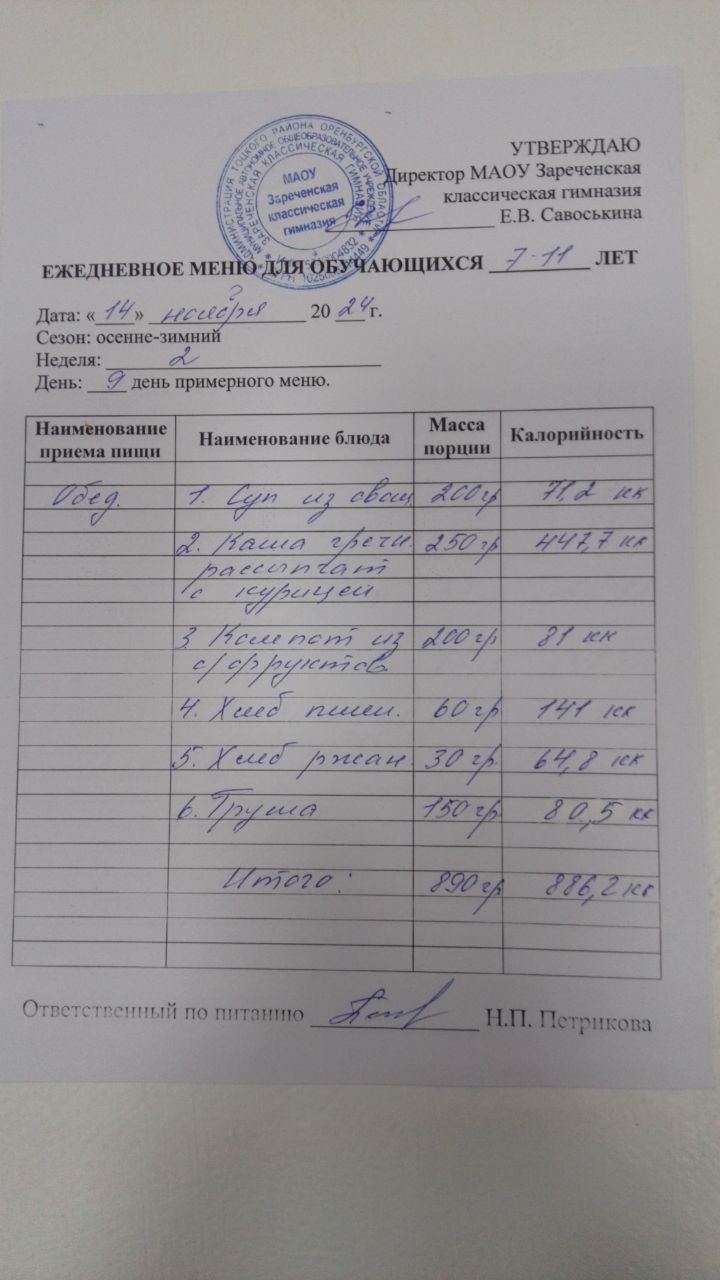 УТВЕРЖДАЮ
Директор МАОУ Зареченская
классическая гимназия
Е.В. Савоськина
АДМИНИСТРАЦИЯ ТОЦКОГО РАЙОНА ОРЕНБУРГСКОЙ ОБЛАСТИ
МУНИЦИПАЛЬНОЕ АВТОНОМНОЕ ОБЩЕОБРАЗОВАТЕЛЬНОЕ УЧРЕЖДЕНИЕ
ЗАРЕЧЕНСКАЯ КЛАССИЧЕСКАЯ ГИМНАЗИЯ
МАОУ
Зареченская
классическая
гимназия
ЕЖЕДНЕВНОЕ МЕНЮ ДЛЯ ОБУЧАЮЩИХСЯ 7-11 ЛЕТ
Дата: «14» ноября 2024 г.
Сезон: осенне-зимний
Неделя: 2
День: 9 день примерного меню.
Наименование приема пищи Наименование блюда Масса порции Калорийность
Обед. 1. Суп из овощ 200гр 71,2 кк
2. Каша гречн. 250гр 447,7 кк
рассыпчат
с курицей
3. Компот из 200гр 81 кк
с/фруктов
4. Хлеб пшен. 60гр 141 кк
5. Хлеб ржан. 30гр 64,8 кк
6. Груша 150гр 80,5 кк
Итого: 890гр 886,2 кк
Ответственный по питанию Н.П. Петрикова